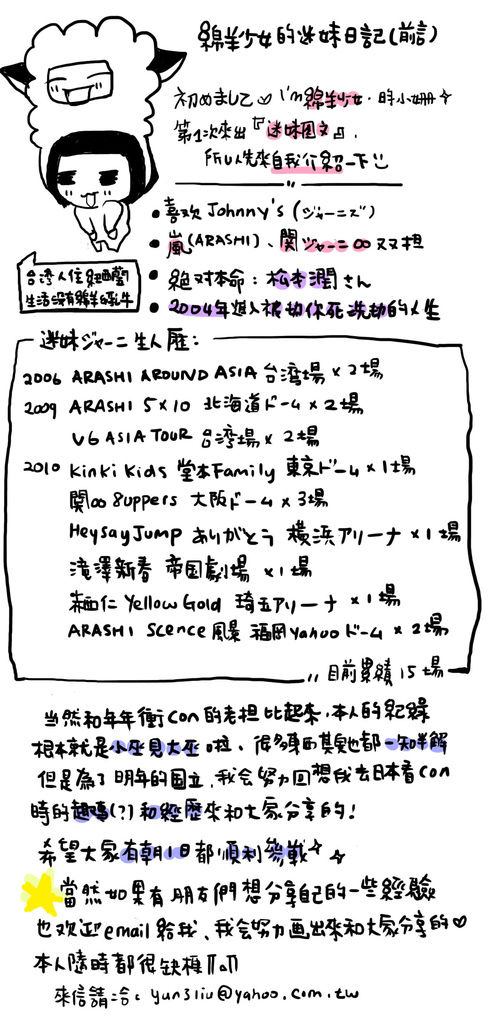 綿羊少女的迷妹日記(前言)
初めまして♡ I'm綿羊少女.時小姍☆
第1次來出『迷妹图文』.
所以先來自我介紹一下
• 喜欢 Johnny's (ジャーニーズ)
• 嵐(ARASHI)、関ジャーニ∞ 双担
• 絕对本命：松本潤さん
• 2004年進入被切你死洗劫的人生
台湾人住紐西蘭
生活沒有綿羊&乳牛
迷妹ジャーニ生人歷：
2006 ARASHI AROUND ASIA 台湾場×2場
2009 ARASHI 5×10 北海道ドーム×2場
V6 ASIA TOUR 台湾場×2場
2010 Kinki Kids 堂本Family 東京ドーム×1場
関∞ 8uppers 大阪ドーム×3場
HeysayJump ありがとう 横浜アリーナ×1場
滝澤新春 帝国劇場 ×1場
赤西仁 Yellow Gold 琦玉アリーナ×1場
ARASHI Scence 風景 福岡Yahooドーム×2場
目前累績15場
当然和年年衝con的老担比起來,本人的紀錄
根本就是小巫見大巫啦、很多東西其實也都一知半解
但是為了明年的国立,我会努力回想我去日本看con
時的趣鳴(?)和經歷來和大家分享的!
希望大家有朝1日都順利參戰☆☆
當然如果有朋友們想分享自己的一些經驗
也欢迎email給我、我会努力画出來和大家分享的♡
本人隨時都很缺梗
來信請洽: yun31iu@yahoo.com.tw